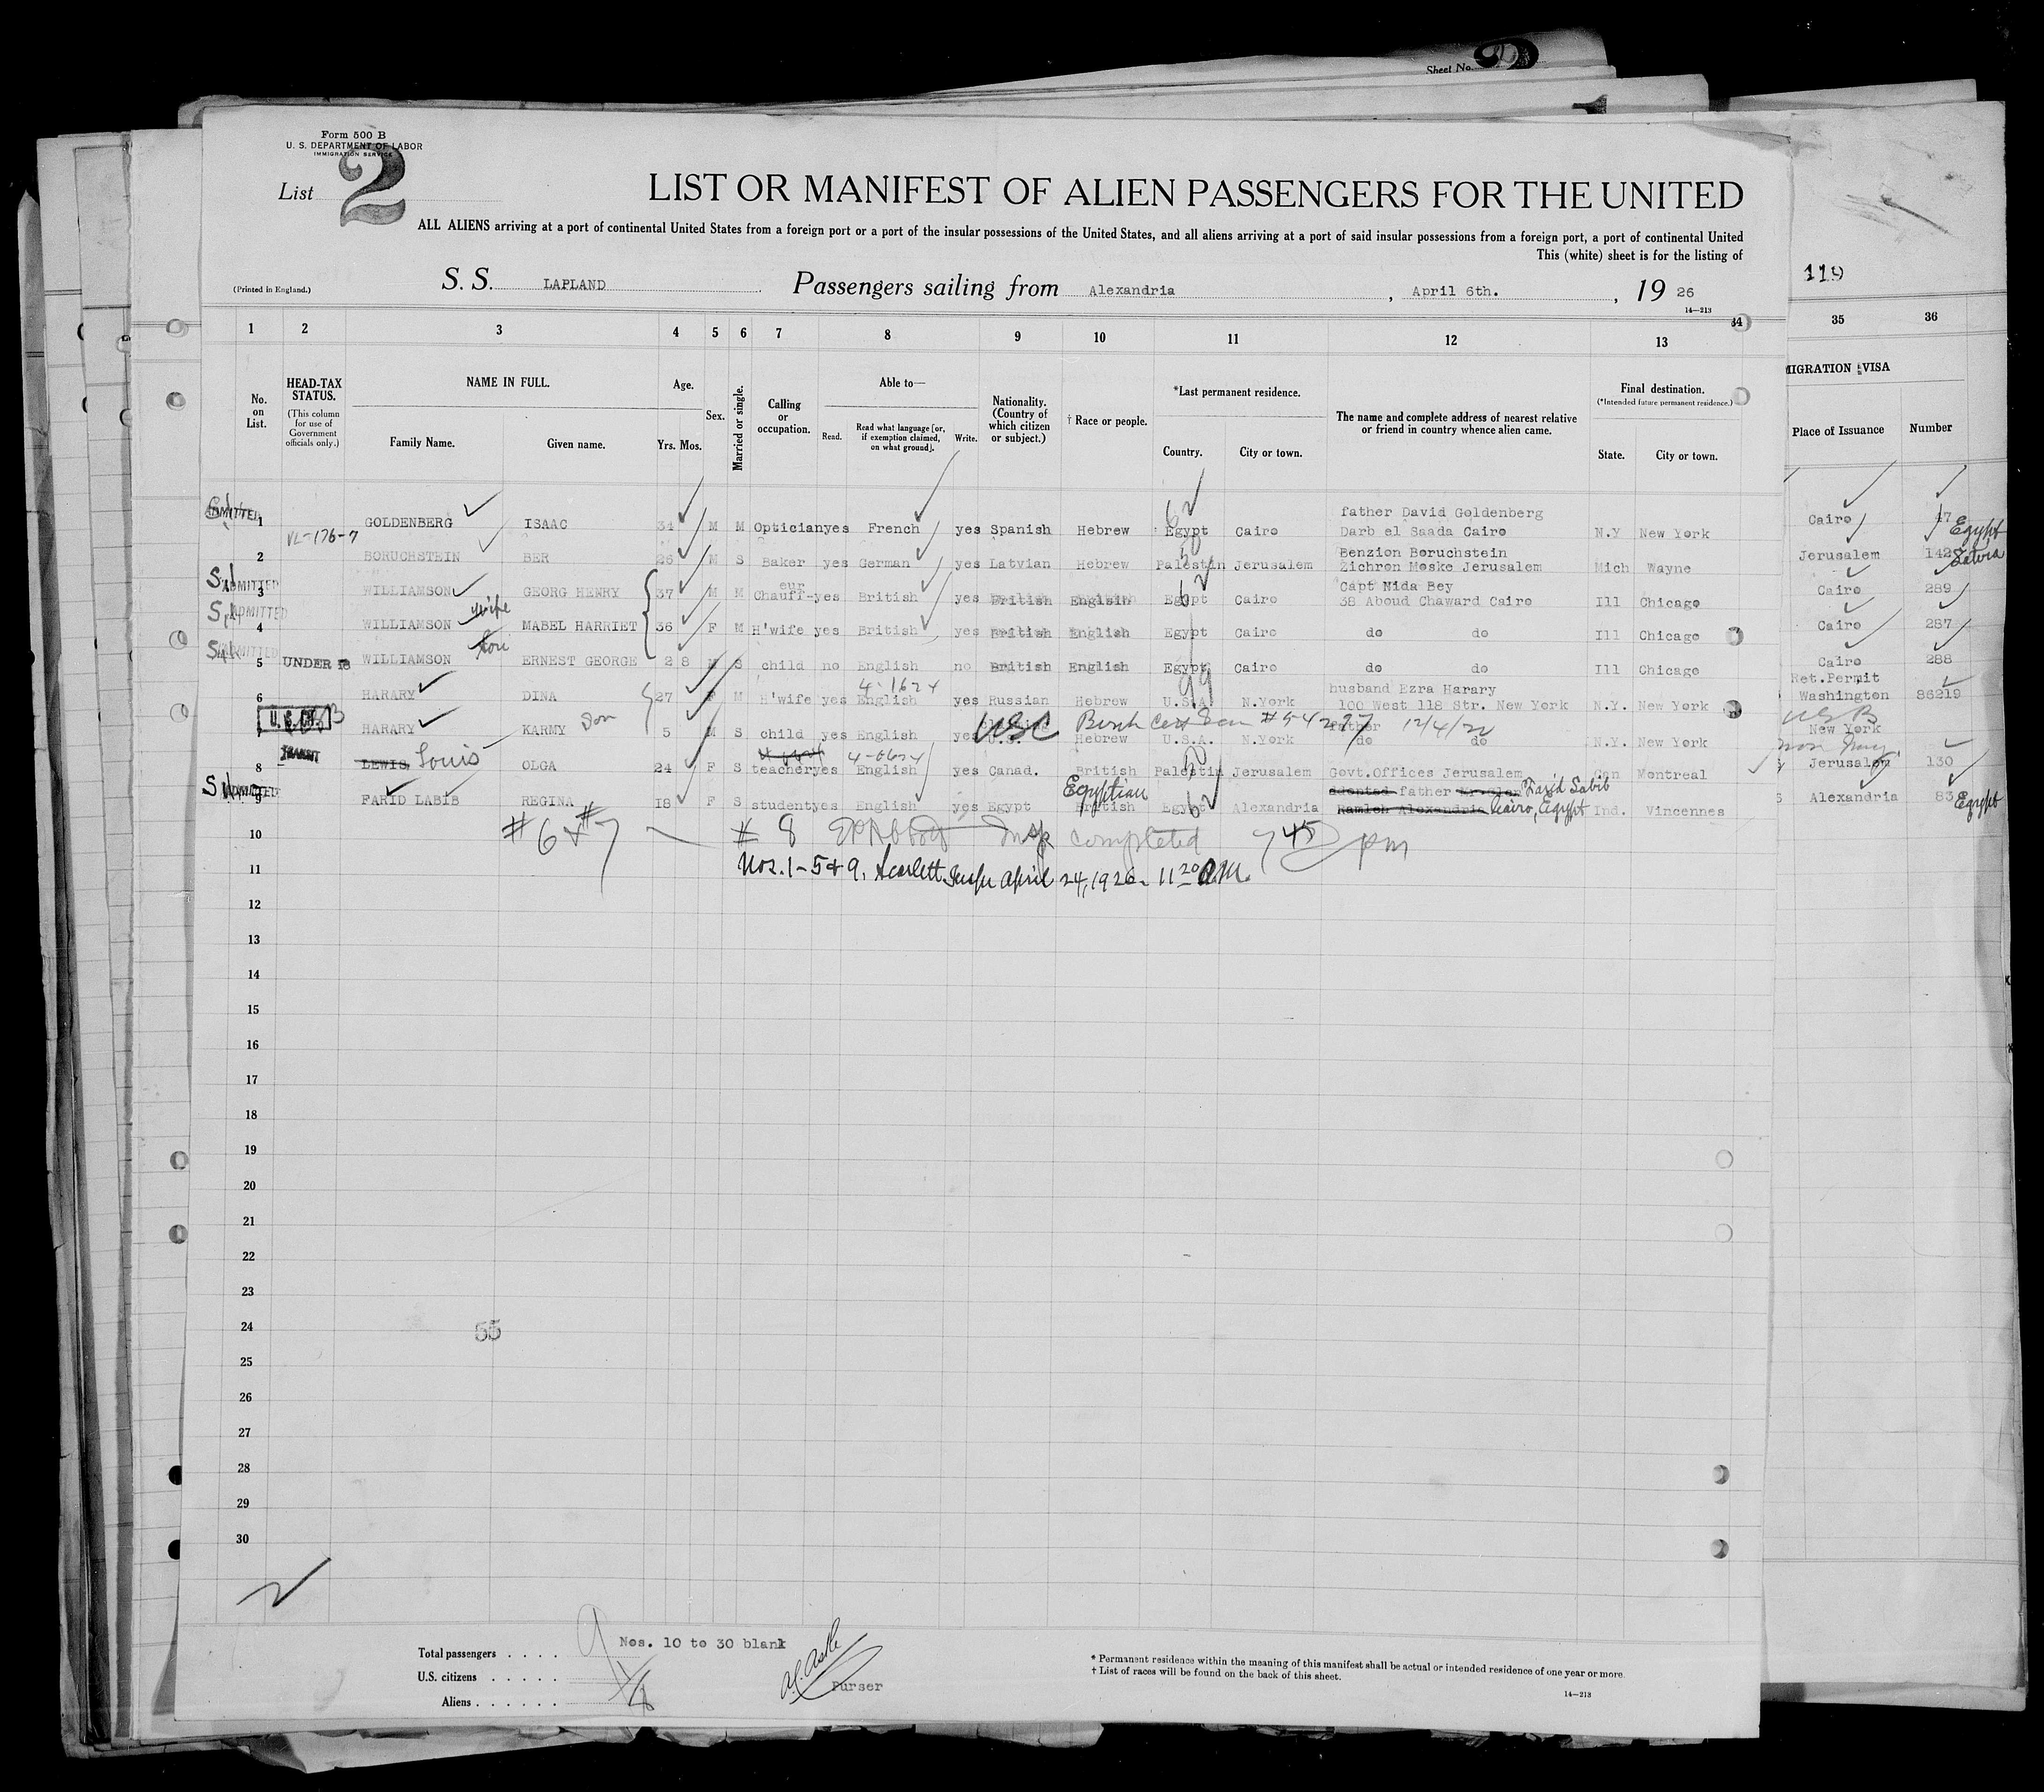 Sheet No. 2
Form 500 B
U. S. DEPARTMENT OF LABOR
IMMIGRATION SERVICE
List 2
LIST OR MANIFEST OF ALIEN PASSENGERS FOR THE UNITED
ALL ALIENS arriving at a port of continental United States from a foreign port or a port of the insular possessions of the United States, and all aliens arriving at a port of said insular possessions from a foreign port, a port of continental United
This (white) sheet is for the listing of
119
(Printed in England.) S. S. LAPLAND Passengers sailing from Alexandria, April 6th., 19 26
14—213
1 2 3 4 5 6 7 8 9 10 11 12 13 34 35 36
No. on List.
HEAD-TAX STATUS.
(This column for use of Government officials only.)
NAME IN FULL.
Family Name. Given name.
Age.
Yrs. Mos.
Sex.
Married or single.
Calling or occupation.
Able to—
Read. Read what language [or, if exemption claimed, on what ground]. Write.
Nationality. (Country of which citizen or subject.)
† Race or people.
*Last permanent residence.
Country. City or town.
The name and complete address of nearest relative or friend in country whence alien came.
Final destination.
(*Intended future permanent residence.)
State. City or town.
MIGRATION VISA
Place of Issuance Number
father David Goldenberg
ADMITTED 1 GOLDENBERG ISAAC 34 M M Optician yes French yes Spanish Hebrew 62 Egypt Cairo Darb el Saada Cairo N.Y New York Cairo 47 Egypt
VL-176-7
Benzion Boruchstein
2 BORUCHSTEIN BER 26 M S Baker yes German yes Latvian Hebrew 50 Palestin Jerusalem Zichron Moske Jerusalem Mich Wayne Jerusalem 142 Latvia
Capt Nida Bey
ADMITTED 3 WILLIAMSON GEORG HENRY 37 M M Chauff-eur yes British yes British English 62 Egypt Cairo 38 Aboud Chaward Cairo Ill Chicago Cairo 289
ADMITTED 4 WILLIAMSON wife MABEL HARRIET 36 F M H'wife yes British yes British English Egypt Cairo do do Ill Chicago Cairo 287
ADMITTED 5 UNDER 16 WILLIAMSON son ERNEST GEORGE 2 8 M S child no English no British English Egypt Cairo do do Ill Chicago Cairo 288
4-1624
husband Ezra Harary
Ret.Permit
6 HARARY DINA 27 F M H'wife yes English yes Russian Hebrew 99 U.S.A N.York 100 West 118 Str. New York N.Y. New York Washington 86219
U. S. CIT.
USC Birth Cert # 54297 12/4/20
father
7 HARARY KARMY son 5 M S child yes English yes U.S. Hebrew U.S.A. N.York do do N.Y. New York USB New York
TRANSIT
4-0624
8 LEWIS Louis OLGA 24 F S teacher yes English yes Canad. British 50 Palestin Jerusalem Govt.Offices Jerusalem Can Montreal Jerusalem 130
Egyptian
adopted father Farid Labib
ADMITTED 9 FARID LABIB REGINA 18 F S student yes English yes Egypt British 62 Egypt Alexandria Ramleh Alexandria Cairo, Egypt Ind. Vincennes Alexandria 83 Egypt
10 #6 & #7 — # 8 Insp completed 7 45 pm
11 Nos. 1-5 & 9. Scarlett Inspr April 24, 1926. 11 20 AM.
12
13
14
15
16
17
18
19
20
21
22
23
24 55
25
26
27
28
29
30
Nos. 10 to 30 blank
Total passengers . . . . 9
U.S. citizens . . . . . 1
Aliens . . . . . . 8
Purser
* Permanent residence within the meaning of this manifest shall be actual or intended residence of one year or more.
† List of races will be found on the back of this sheet.
14—213